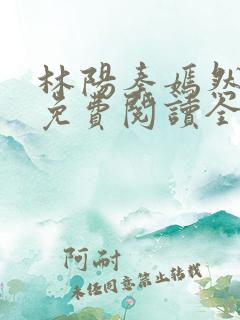 林陽秦嫣然
免費閱讀全
阿耐
未经同意禁止转载